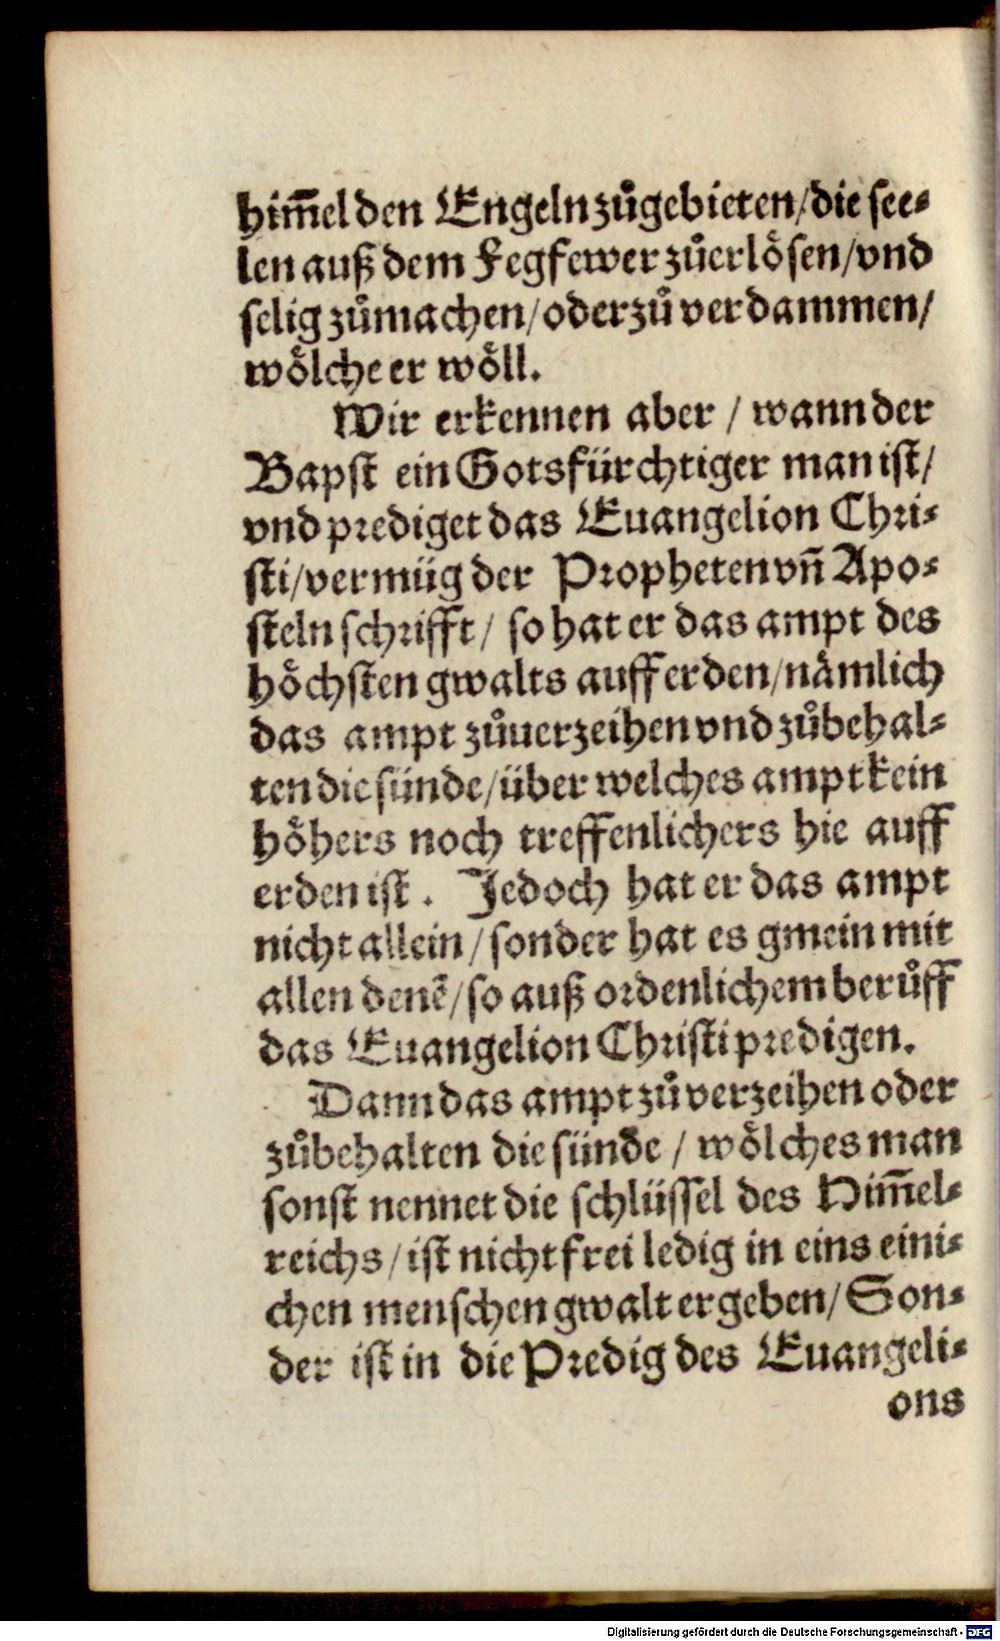 him̃el den Engeln zůgebieten/die see⸗
len auß dem Fegfewer zůerlösen/vnd
selig zůmachen/oder zů verdammen/
wölche er wöll.
Wir erkennen aber / wann der
Bapst ein Gotsfürchtiger man ist/
vnd prediget das Euangelion Chri⸗
sti/vermüg der Propheten vñ Apo⸗
steln schrifft/ so hat er das ampt des
höchsten gwalts auff erden/nämlich
das ampt zůuerzeihen vnd zůbehal⸗
ten die sünde/über welches ampt kein
höhers noch treffenlichers hie auff
erden ist. Jedoch hat er das ampt
nicht allein/sonder hat es gmein mit
allen denẽ/so auß ordenlichem berůff
das Euangelion Christi predigen.
Dann das ampt zů verzeihen oder
zůbehalten die sünde / wölches man
sonst nennet die schlüssel des Him̃el⸗
reichs/ist nicht frei ledig in eins eini⸗
chen menschen gwalt ergeben/Son⸗
der ist in die Predig des Euangeli⸗
ons
Digitalisierung gefördert durch die Deutsche Forschungsgemeinschaft - DFG